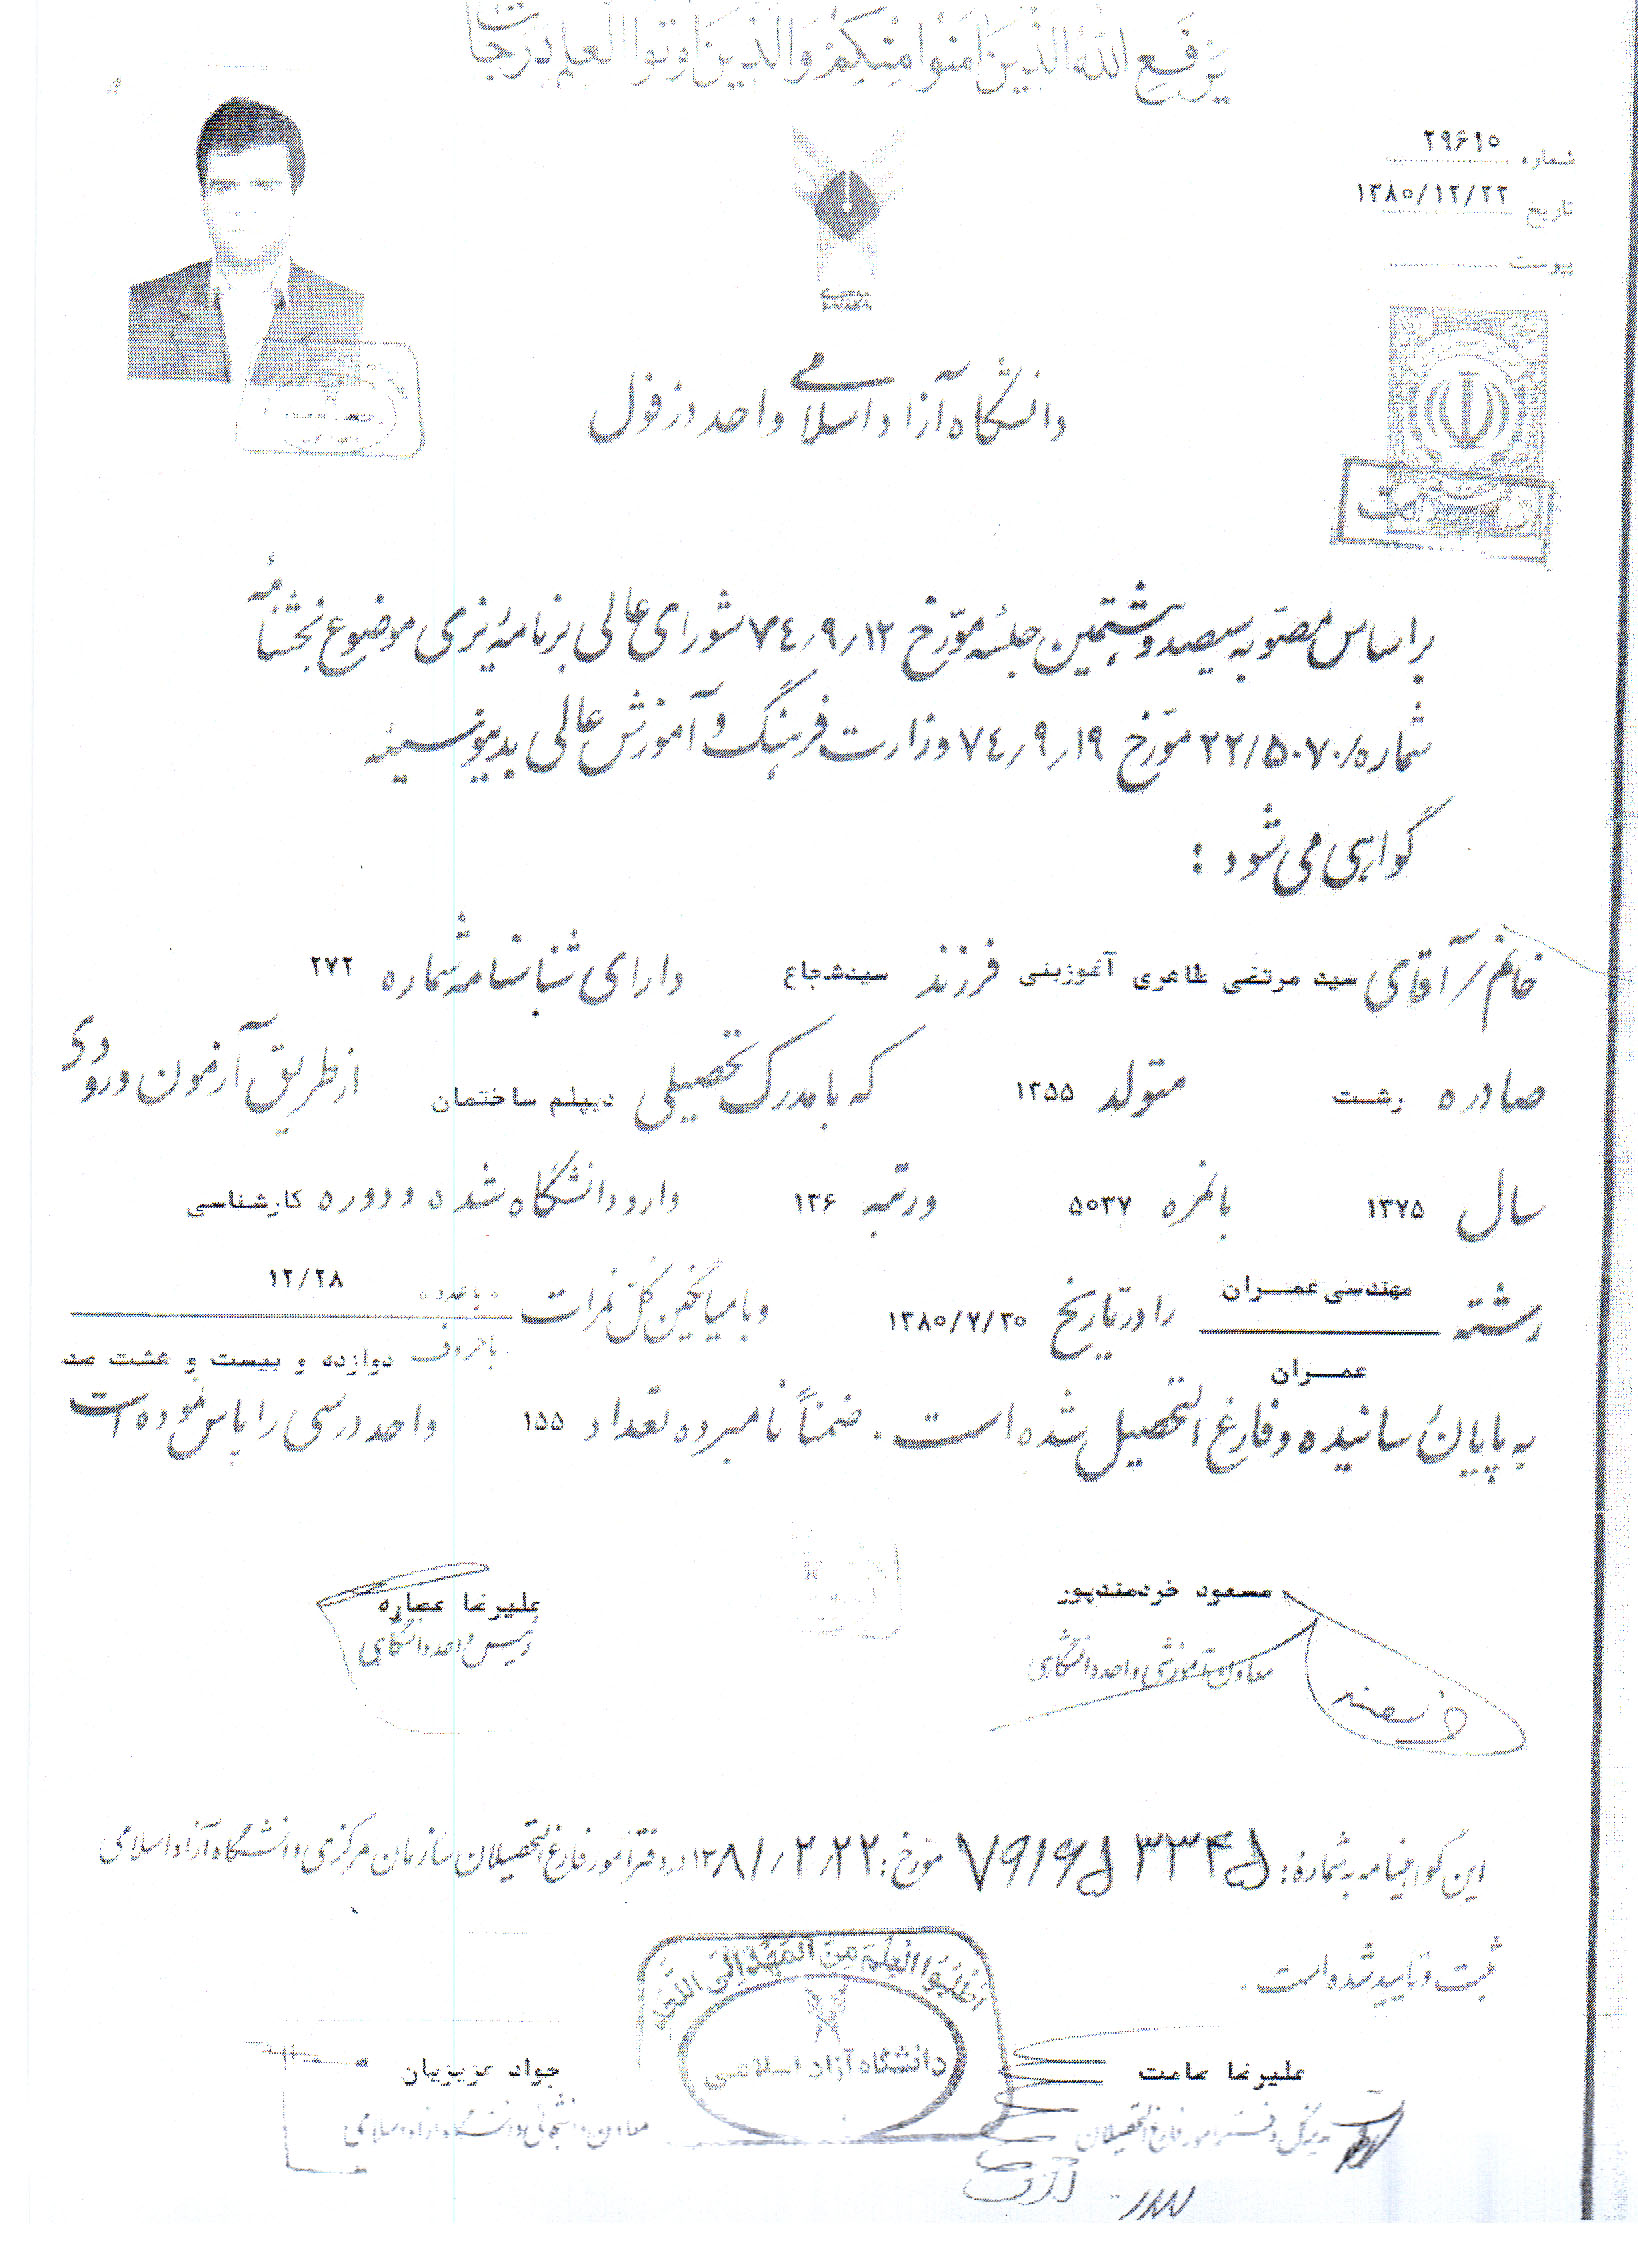 یرفع الله الذین آمنوا منکم والذین اوتوا العلم درجات
شماره ۲۹۶۱۵
تاریخ ۱۳۸۰/۱۲/۲۲
پیوست
دانشگاه آزاد اسلامی واحد دزفول
براساس مصوبه سیصد و هشتمین جلسه مورخ ۷۴/۹/۱۲ شورای عالی برنامه ریزی موضوع بخشنامه
شماره ۲۲/۵۰۷۰ مورخ ۷۴/۹/۱۹ وزارت فرهنگ و آموزش عالی بدینوسیله
گواهی می شود :
خانم / آقای سید مرتضی طاهری آغوزبنی فرزند سیدشجاع دارای شناسنامه شماره ۲۷۲
صادره رشت متولد ۱۳۵۵ که با مدرک تحصیلی دیپلم ساختمان از طریق آزمون ورودی
سال ۱۳۷۵ با نمره ۵۰۳۷ و رتبه ۱۳۶ وارد دانشگاه شده و دوره کارشناسی
رشته مهندسی عمران را در تاریخ ۱۳۸۰/۷/۳۰ و با میانگین کل نمرات با عدد ۱۲/۲۸
عمران با حروف دوازده و بیست و هشت صد
به پایان رسانیده و فارغ التحصیل شده است . ضمناً نامبرده تعداد ۱۵۵ واحد درسی را پاس نموده است
مسعود خردمندپور علیرضا عصاره
معاون آموزشی واحد دانشگاهی رئیس واحد دانشگاهی
این گواهینامه به شماره : مورخ : ۱۳۸۱/۲/۲۲ در دفتر امور فارغ التحصیلان سازمان مرکزی دانشگاه آزاد اسلامی
ثبت و تایید شده است .
اطلبوا العلم من المهد الی اللحد
دانشگاه آزاد اسلامی
علیرضا جواد عزیزیان
مدیرکل دفتر امور فارغ التحصیلان معاون دانشجوئی دانشگاه آزاد اسلامی